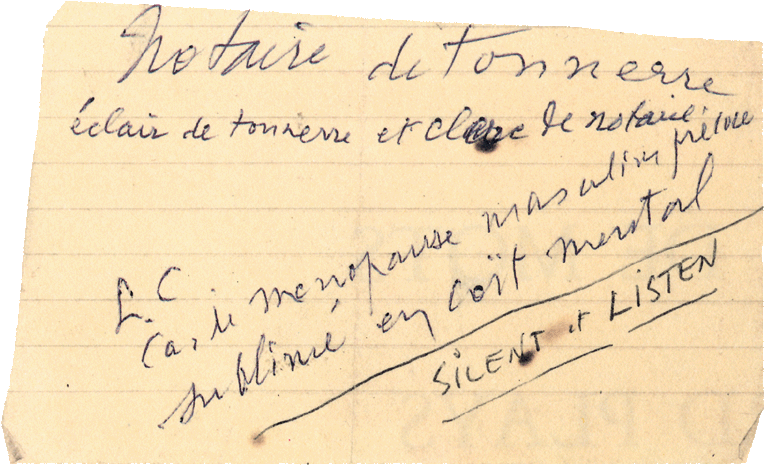 Notaire de tonnerre
éclair de tonnerre et clerc de notaire.
L.C.
Cas de menopause masculin
sublimé en coït mental
SiLENT et LiSTEN